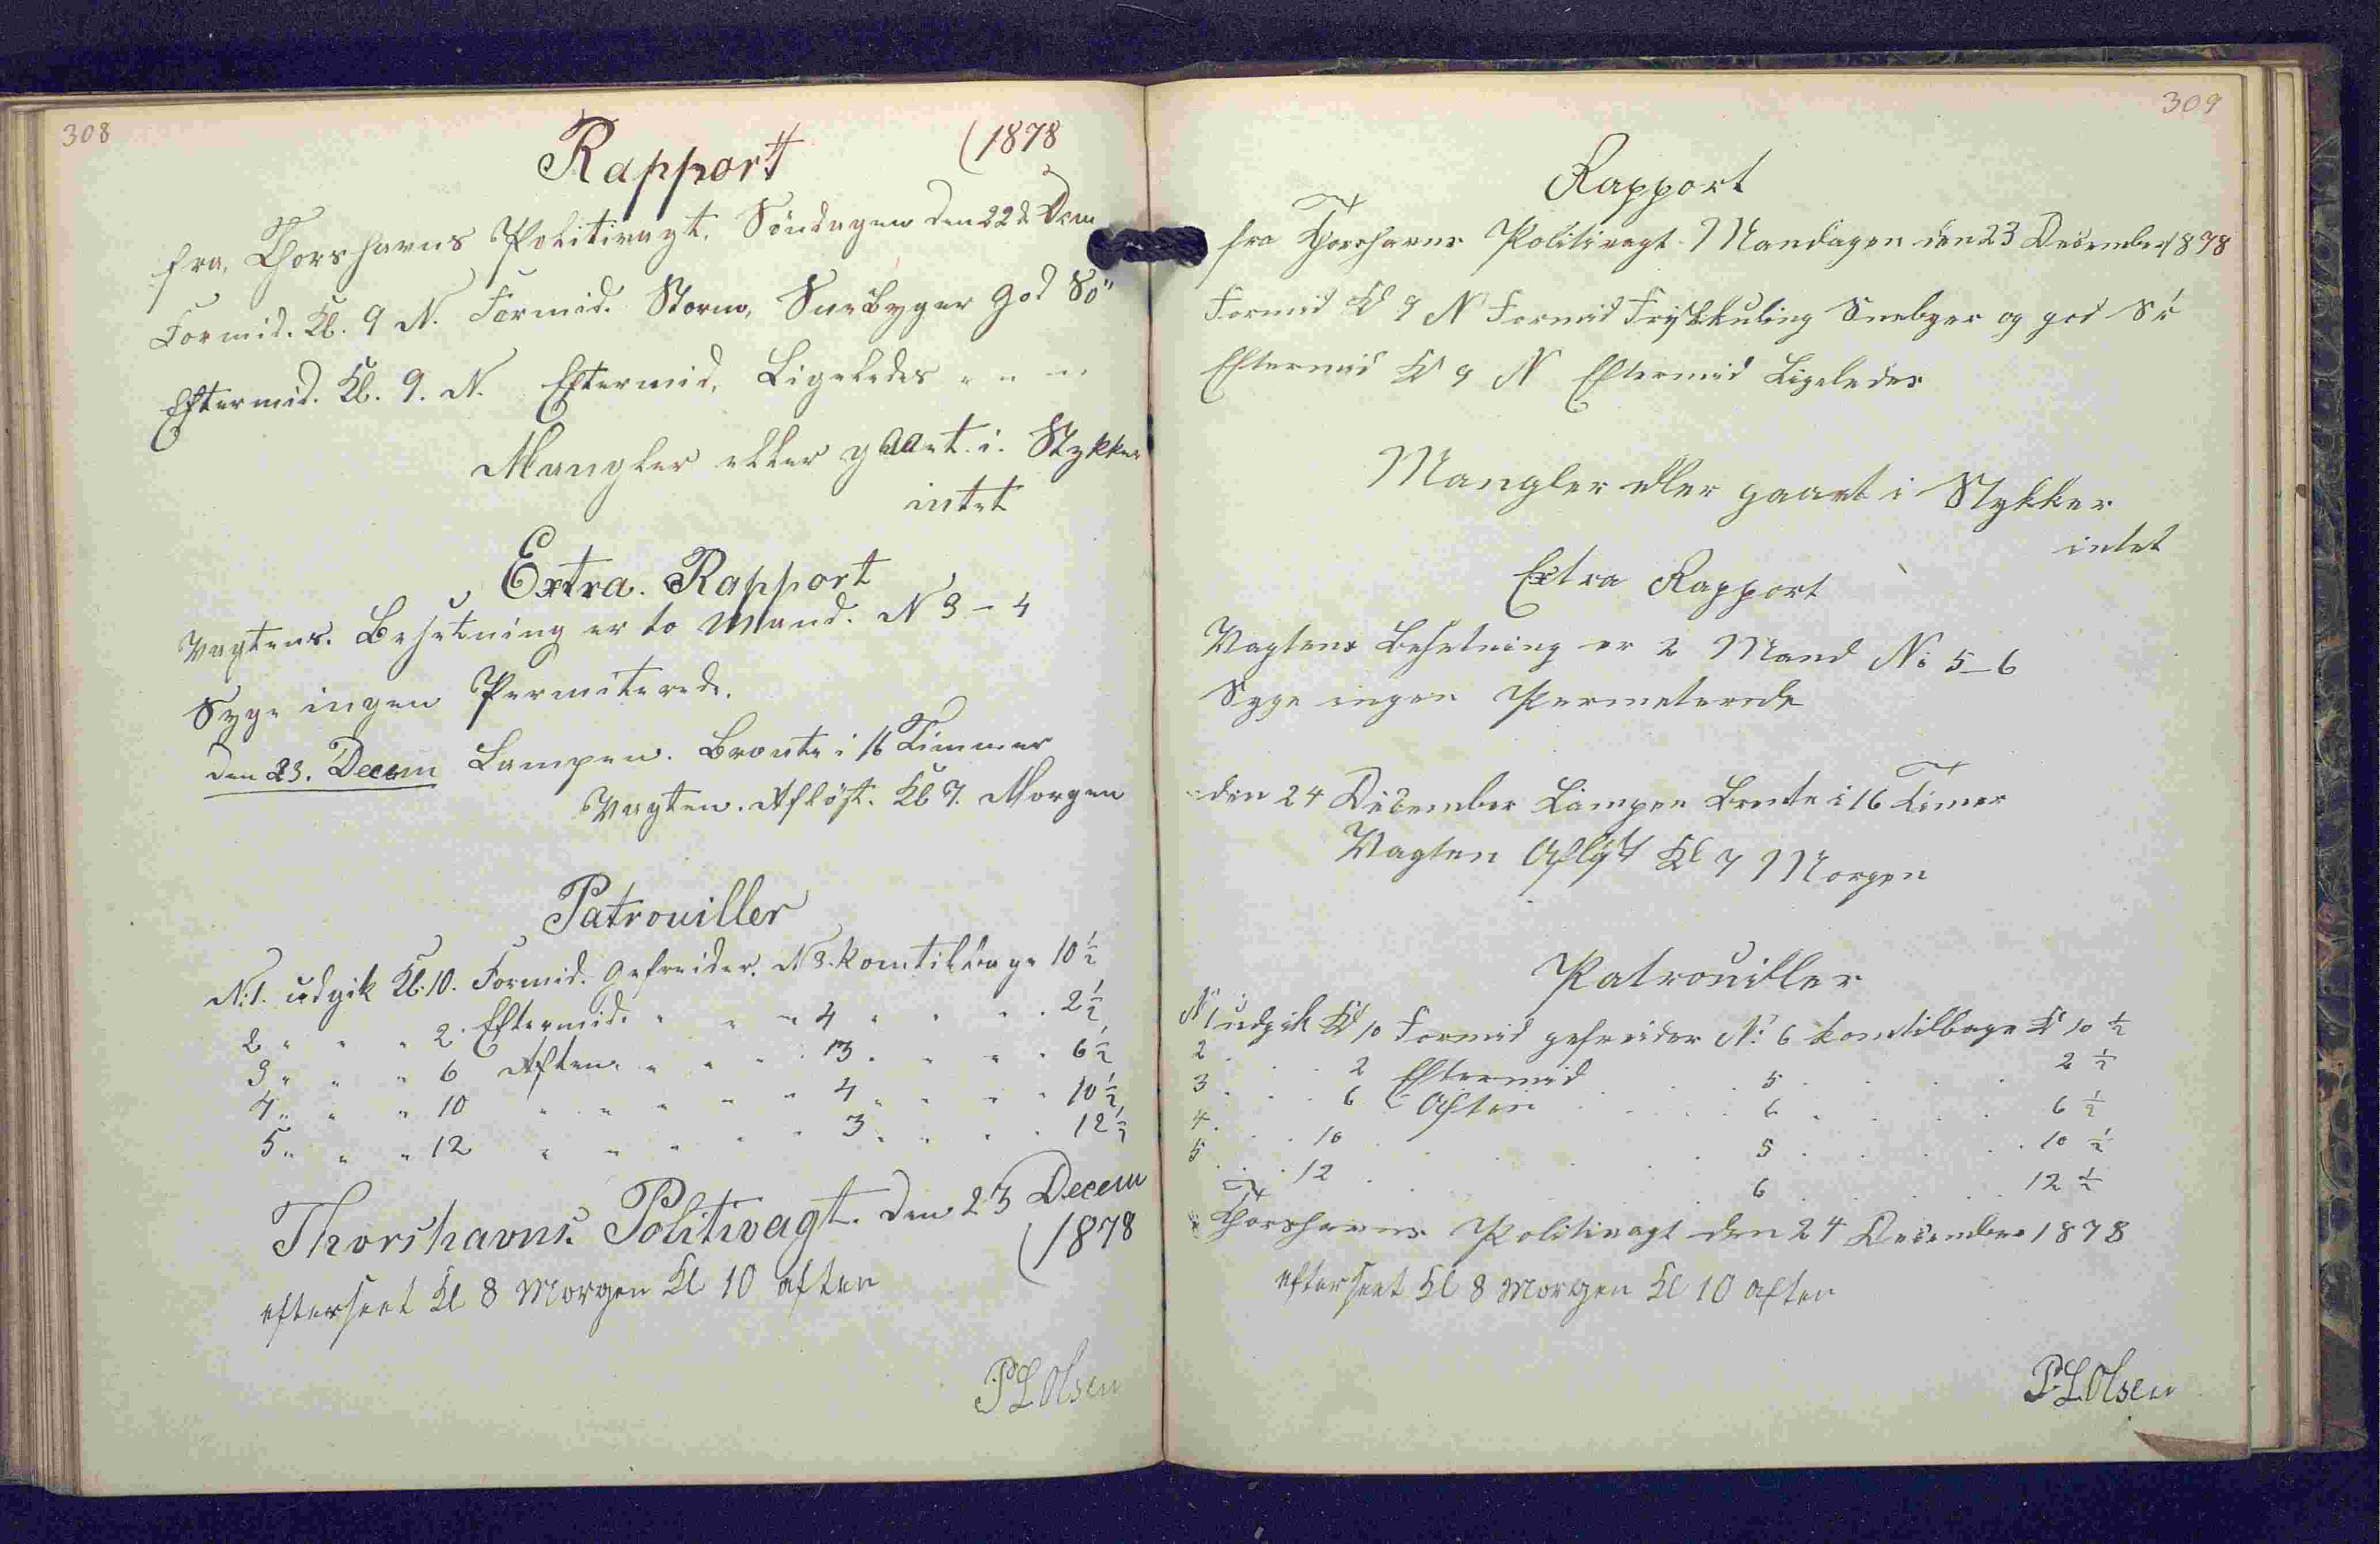 308
Rapport (1878
fra, Thorshavns Politivagt. Söndagen den 22de Dem
Formid. Kl. 9 N. Formid. Storm, Snebyger god Sö"
Eftermid. Kl. 9. N. Eftermid, Ligeledes " " "
Mangler eller gaaet i. Stykker
intet
Extra. Rapport
Vagtens. Besetning er to Mand. N 3 - 4
Syge ingen Permiterede.
den 23. Decem Lampen. Brænte i 16 Timmer
Vagten. Aflöst. Kl 7. Morgen
Patrouiller
N:1. udgik Kl: 10. Formid. Gefreider. N 3. kom tilbage 10 ½
2 " " " 2. Eftermid. " " " 4 " " " 2 ½
3 " " " 6 Aften. " " " 13. " " " 6 ½
4 " " " 10 " " " " 4 " " " " 10 ½
5 " " " 12 " " " " " 3. " " " 12 ½
Thorshavns. Politivagt. den 23 Decem
(1878
efterseet Kl 8 Morgen Kl 10 aften
P L Olsen
309
Rapport
fra Thorshavns Politivagt Mandagen den 23 December 1878
Formid Kl 9 N Formid Friskkuling Snebyer og god Sö
Eftermid Kl 9 N Eftermid Ligeledes
Mangler eller gaaet i Stykker
intet
Extra Rapport
Vagtens Besetning er 2 Mand N: 5-6
Syge ingen Permeterede
den 24 December Lampen Brente i 16 Timer
Vagten Afløst Kl 7 Morgen
Patrouiller
N 1 udgik Kl 10 Formid gefreider N: 6 kom tilbage Kl 10 ½
2 . . . 2 Eftermid . . 5 . . . 2 ½
3 . . . 6 Aften . . . 6 . . . 6 ½
4 . . . 10 . . . . 5 . . . 10 ½
5 . . . 12 . . . . 6 . . . 12 ½
Thorshavns Politivagt den 24 December 1878
efterseet Kl 8 Morgen Kl 10 aften
P L Olsen